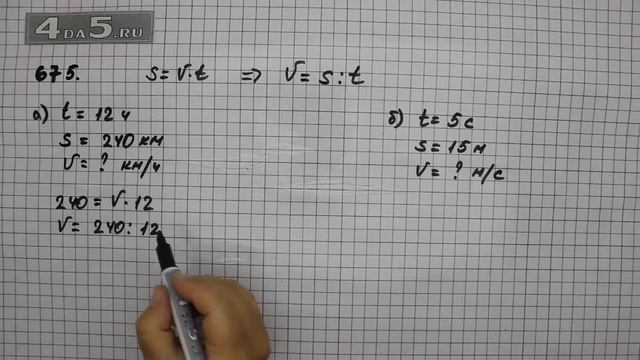 4DA5.RU
675. S = V · t ⇒ V = S : t
а) t = 12 ч
S = 240 км
V = ? км/ч
240 = V · 12
V = 240 : 12
б) t = 5 с
S = 15 м
V = ? м/с